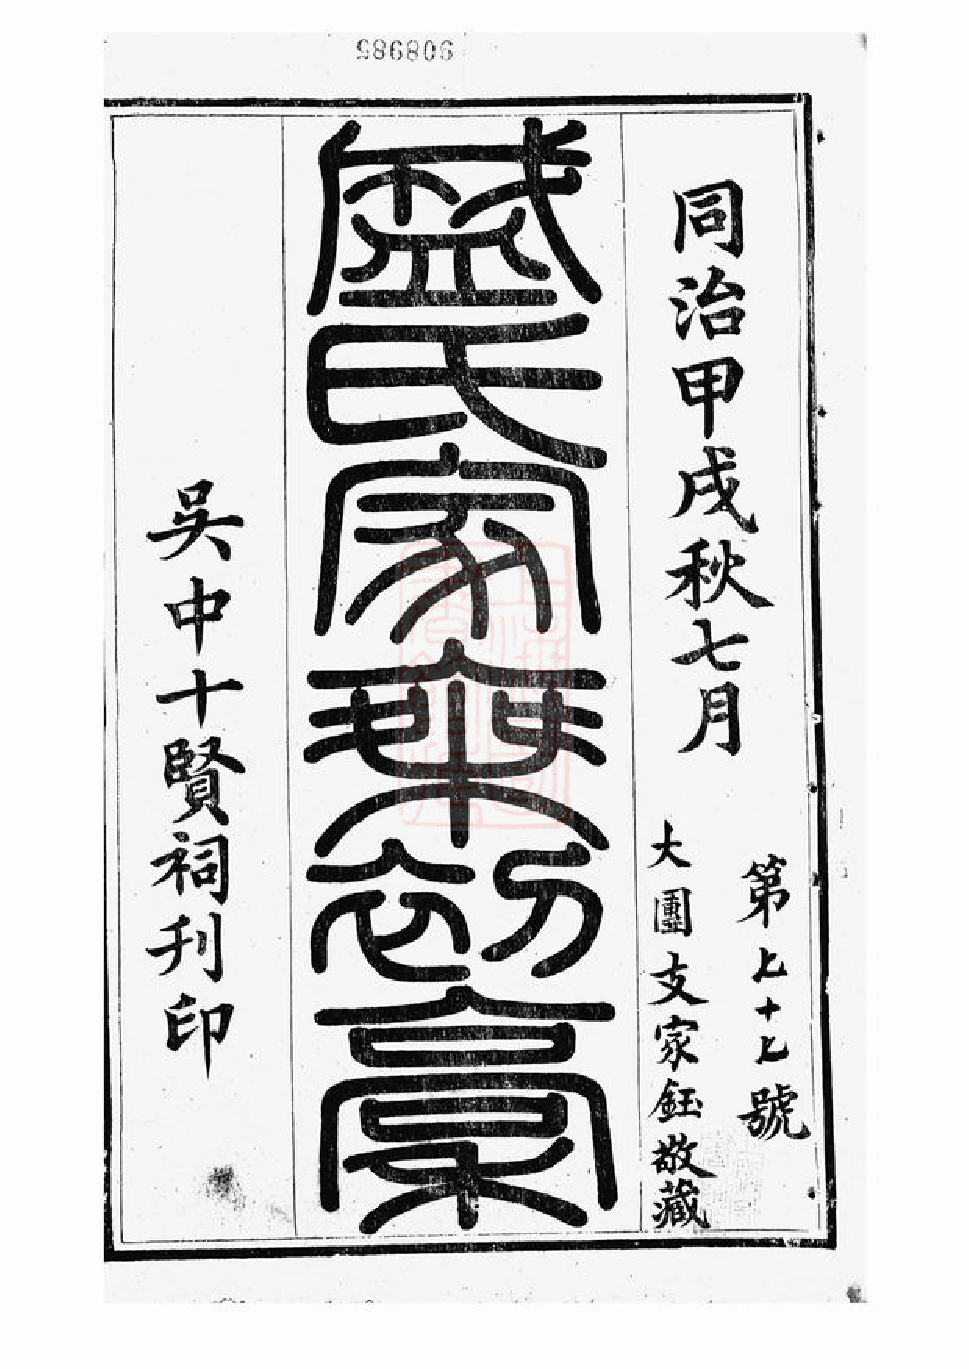 同治甲戌秋七月
第七十七號
大團支家鈺敬藏
盛氏家乘初稾
吳中十賢祠刊印